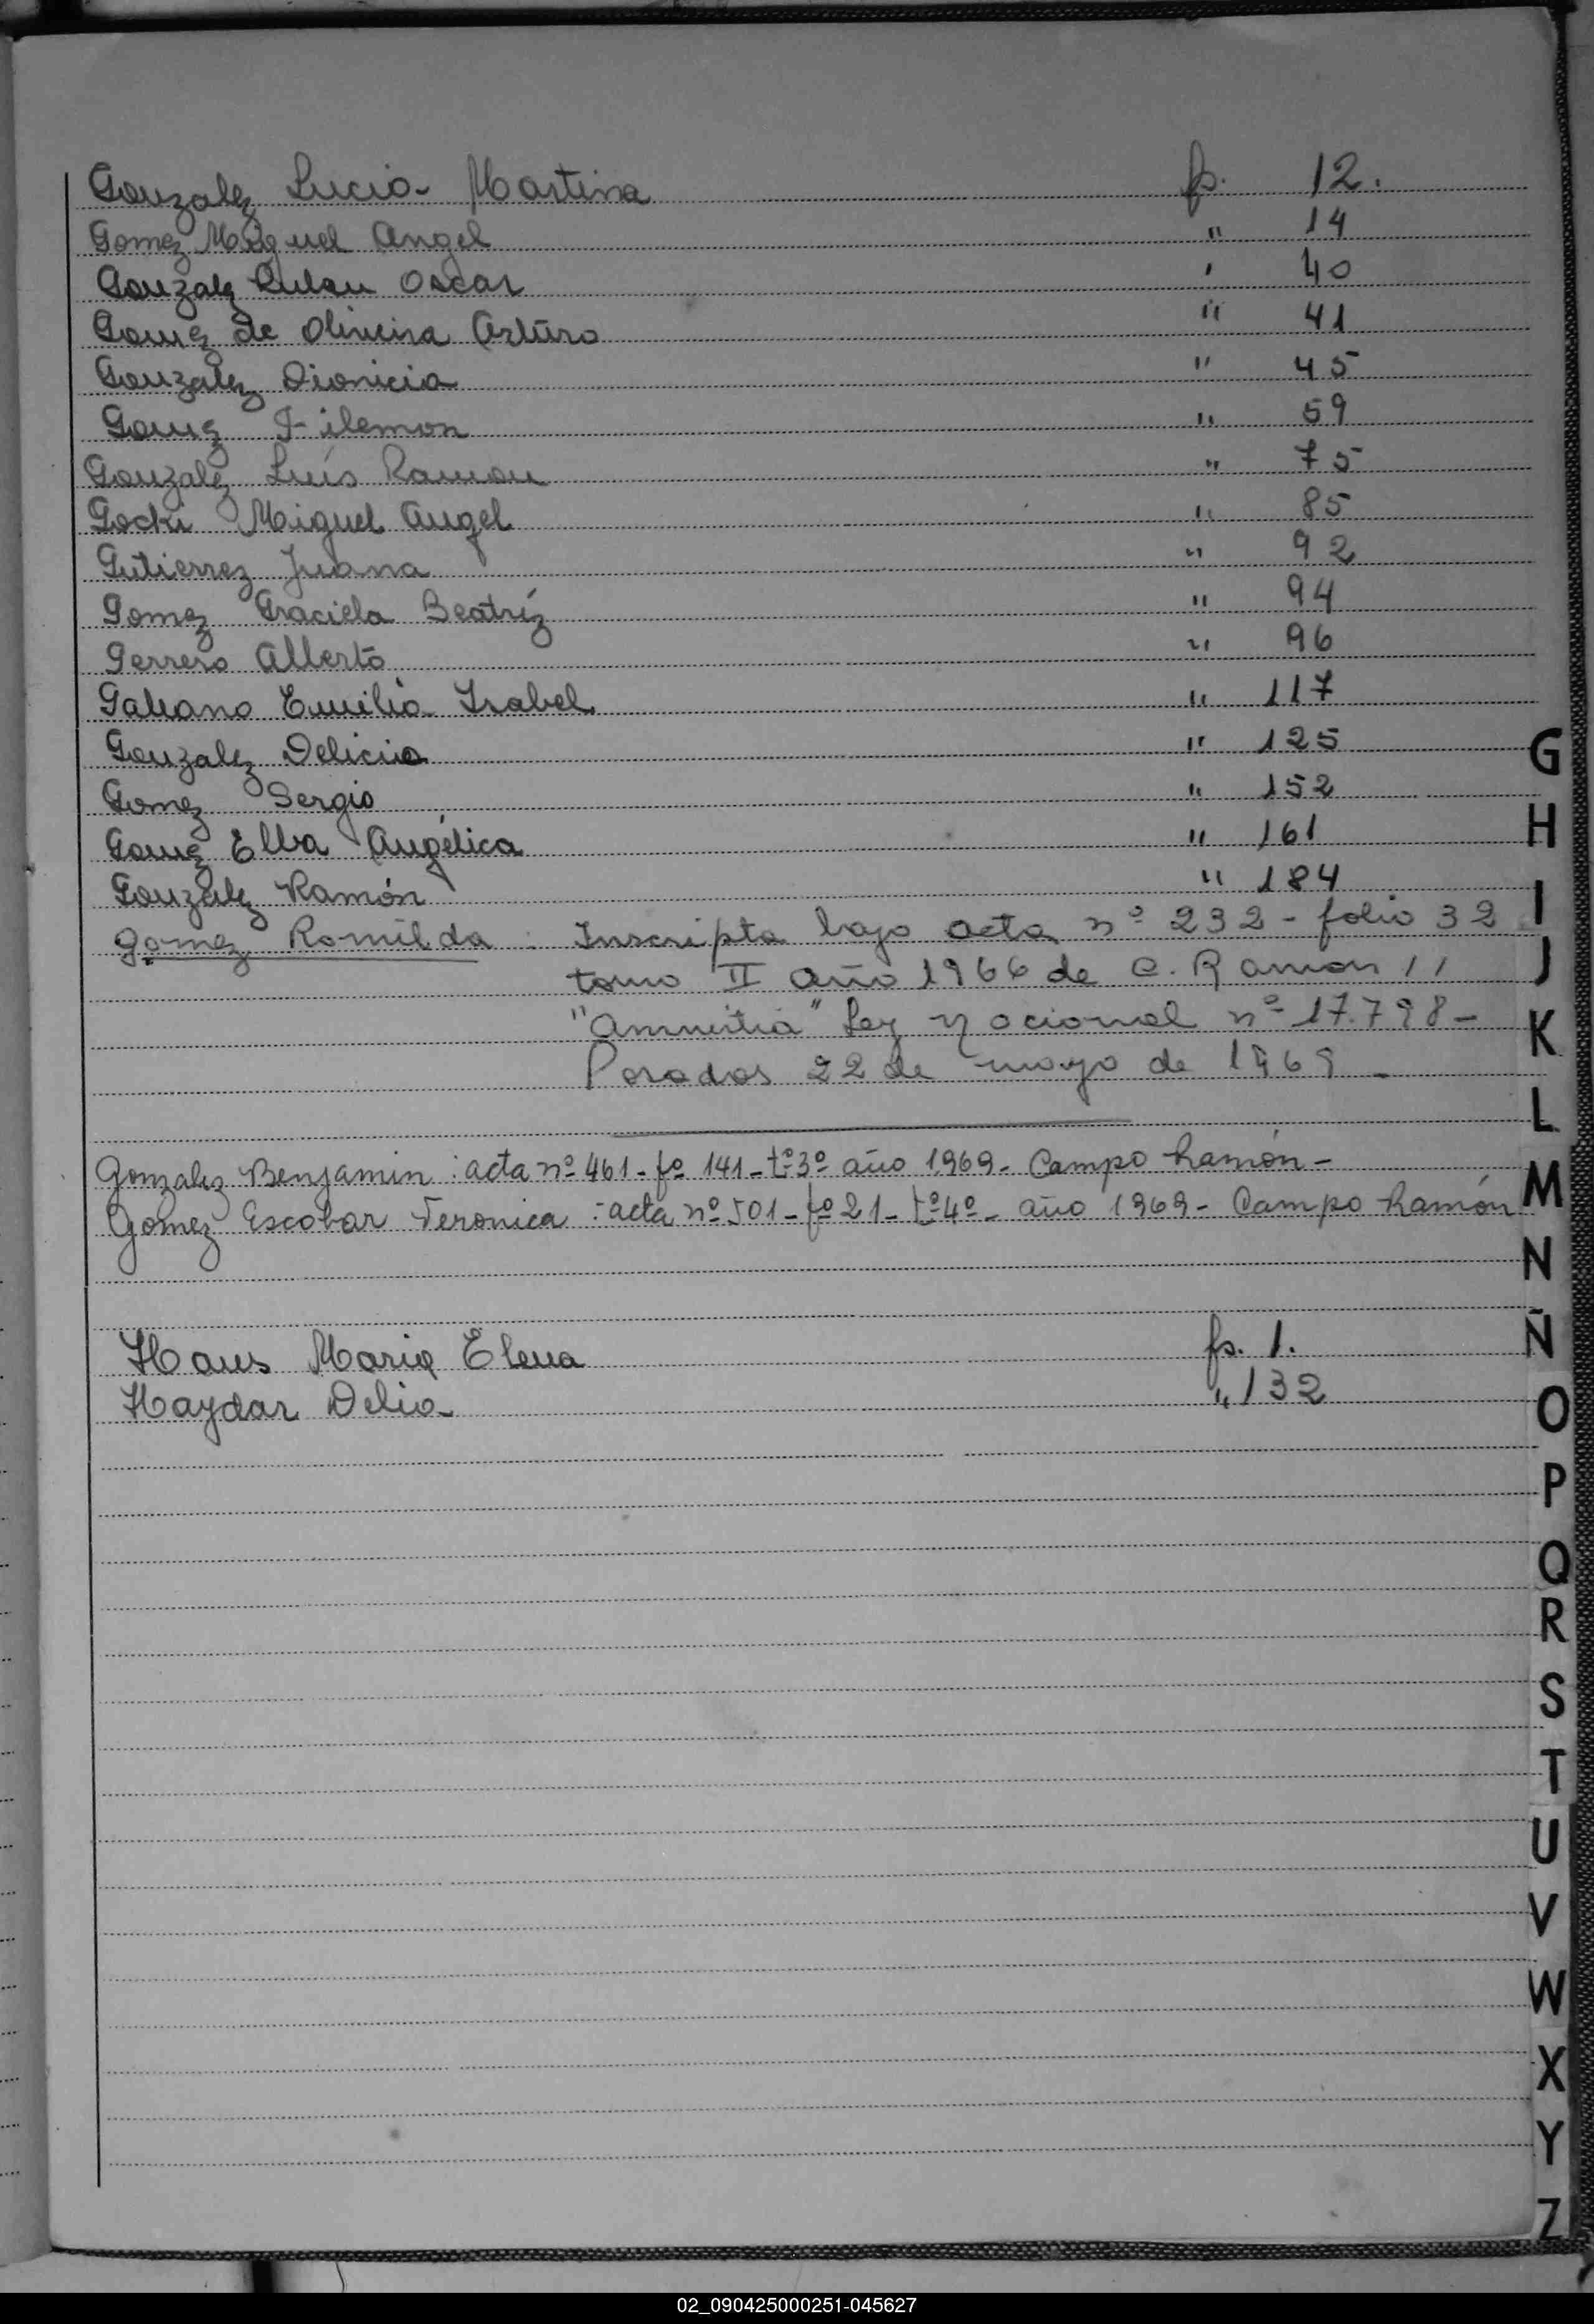 Gonzalez Lucia Martina fs. 12.
Gomez Miguel Angel " 14
Gonzalez Ruben Oscar " 40
Gomez de Oliveira Arturo " 41
Gonzalez Dionicia " 45
Gomez Filemon " 59
Gonzalez Luís Ramon " 75
Gocki Miguel Angel " 85
Gutierrez Juana " 92
Gomez Graciela Beatríz " 94
Gerrero Alberto " 96
Galeano Emilia Isabel " 117
Gonzalez Delicia " 125
Gomez Sergio " 152
Gomez Elba Angélica " 161
Gonzalez Ramón " 184
Gomez Romilda : Inscripta bajo acta nº 232 - folio 32
tomo II año 1966 de C. Ramon //
"amnistia" Ley Nacional nº 17.798 -
Posadas 22 de mayo de 1969 -
Gonzalez Benjamin : acta nº 461 - fº 141 - tº 3º año 1969 - Campo Ramón -
Gomez Escobar Veronica : acta nº 501 - fº 21 - tº 4º - año 1969 - Campo Ramón
Haus Maria Elena fs. 1.
Haydar Delia " 132
G
H
I
J
K
L
M
N
Ñ
O
P
Q
R
S
T
U
V
W
X
Y
Z
02_090425000251-045627